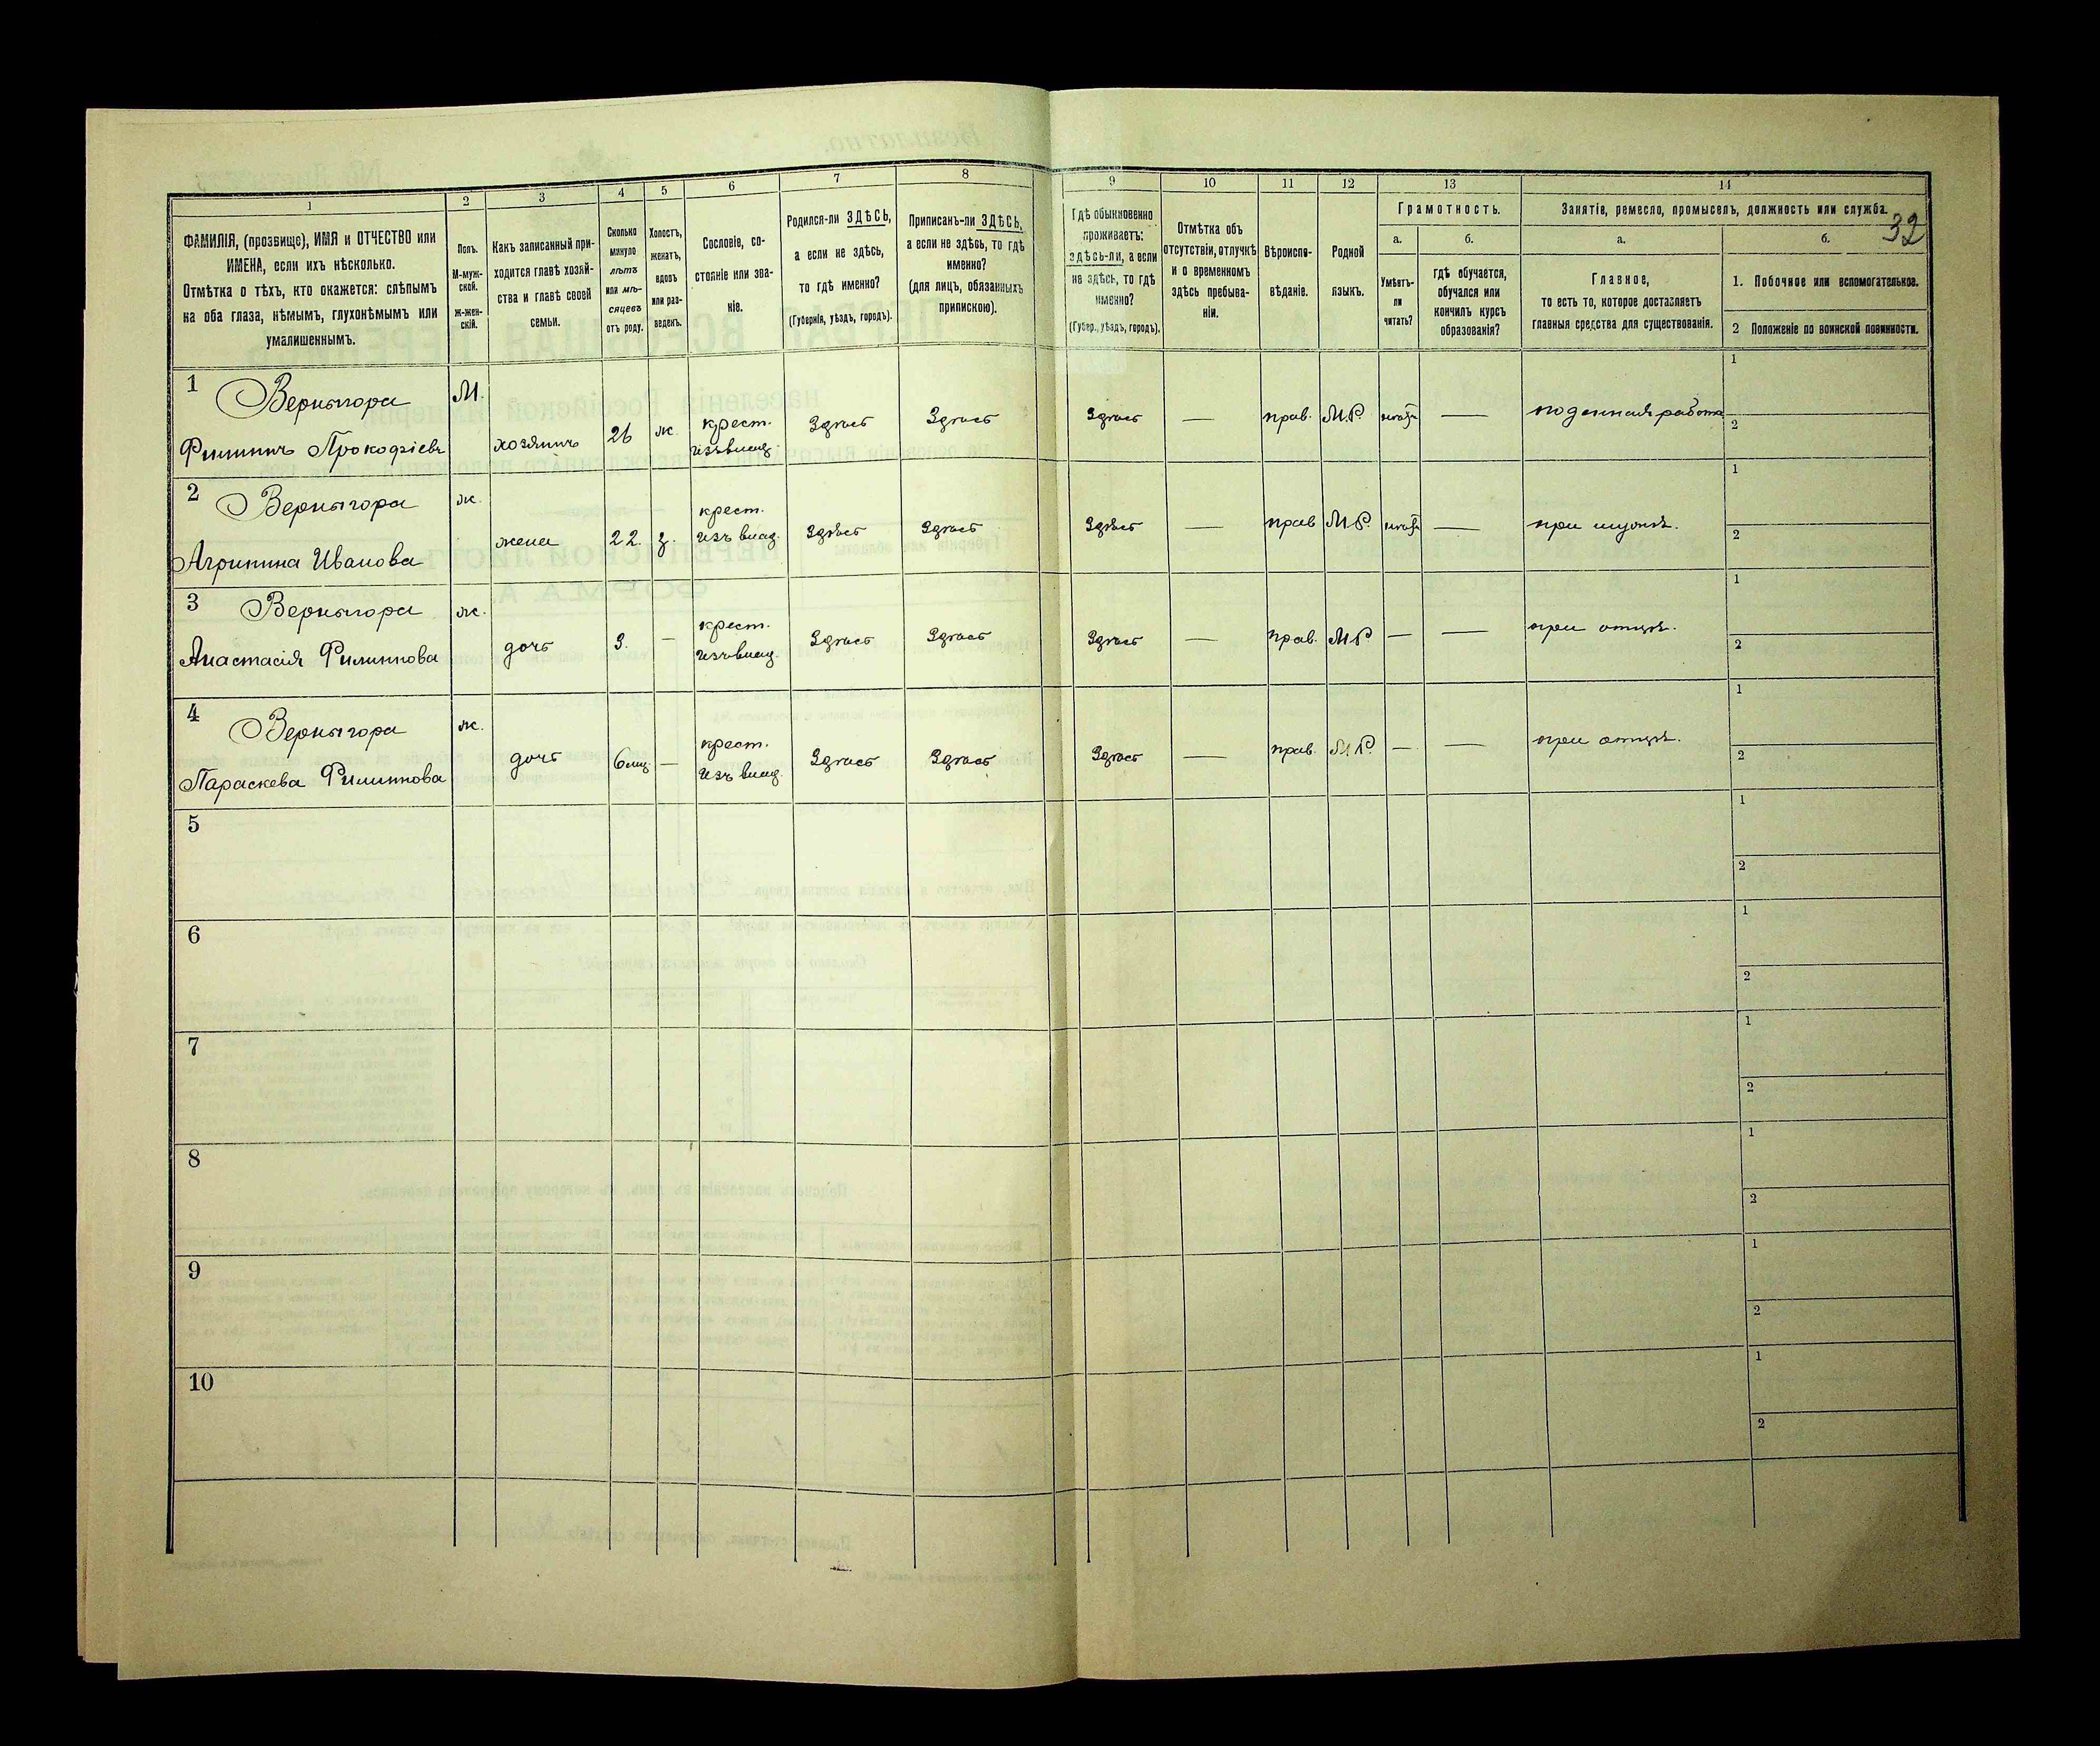 32
1 2 3 4 5 6 7 8 9 10 11 12 13 14
ФАМИЛІЯ, (прозвище), ИМЯ и ОТЧЕСТВО или
ИМЕНА, если ихъ нѣсколько.
Отмѣтка о тѣхъ, кто окажется: слѣпымъ
на оба глаза, нѣмымъ, глухонѣмымъ или
умалишеннымъ.
Полъ.
М-муж-
ской.
ж-жен-
скій.
Какъ записанный при-
ходится главѣ хозяй-
ства и главѣ своей
семьи.
Сколько
минуло
лѣтъ
или мѣ-
сяцевъ
отъ роду.
Холостъ,
женатъ,
вдовъ
или раз-
веденъ.
Сословіе, со-
стояніе или зва-
ніе.
Родился-ли ЗДѢСЬ,
а если не здѣсь,
то гдѣ именно?
(Губернія, уѣздъ, городъ).
Приписанъ-ли ЗДѢСЬ,
а если не здѣсь, то гдѣ
именно?
(для лицъ, обязанныхъ
припискою).
Гдѣ обыкновенно
проживаетъ:
здѣсь-ли, а если
не здѣсь, то гдѣ
именно?
(Губер., уѣздъ, городъ).
Отмѣтка объ
отсутствіи, отлучкѣ
и о временномъ
здѣсь пребыва-
ніи.
Вѣроиспо-
вѣданіе.
Родной
языкъ.
Грамотность.
а.
Умѣетъ-
ли
читать?
б.
гдѣ обучается,
обучался или
кончилъ курсъ
образованія?
Занятіе, ремесло, промыселъ, должность или служба.
а.
Главное,
то есть то, которое доставляетъ
главныя средства для существованія.
б.
1. Побочное или вспомогательное.
2 Положеніе по воинской повинности.
1 Вернигора М.
Филиппъ Прокофіевъ хозяинъ 26 ж. крест. изъ влад. Здѣсь Здѣсь Здѣсь — прав. М.Р. — поденная работа
1
2
2 Вернигора ж.
Агрипина Иванова жена 22. з. крест. изъ влад. Здѣсь Здѣсь Здѣсь — прав М.Р. — при мужѣ.
1
2
3 Вернигора ж.
Анастасія Филиппова дочь 3. — крест. изъ влад. Здѣсь Здѣсь Здѣсь — прав. М.Р. — — при отцѣ.
1
2
4 Вернигора ж.
Параскева Филиппова дочь 6 мц — крест. изъ влад. Здѣсь Здѣсь Здѣсь — прав. М.Р. — — при отцѣ.
1
2
5
1
2
6
1
2
7
1
2
8
1
2
9
1
2
10
1
2